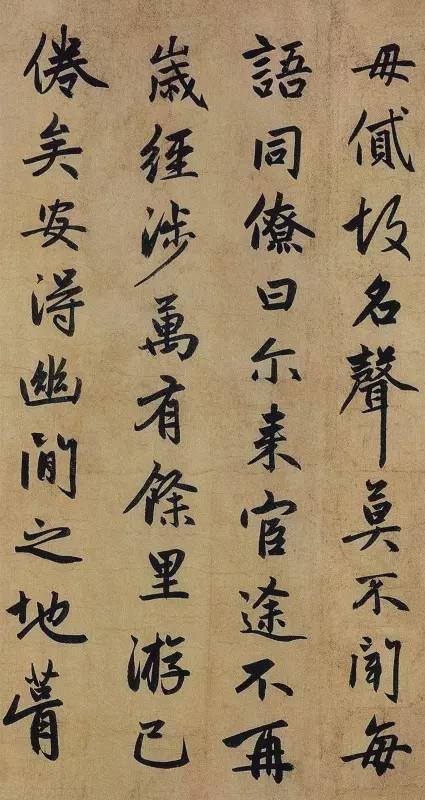 毋貸故名聲莫不聞每
語同僚曰尓来官途不再
歲經涉萬有餘里游已
倦矣安得幽閒之地